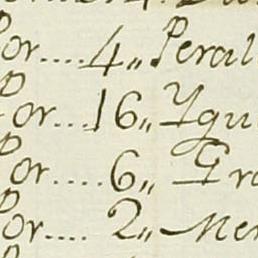 Por....4,, Peral
Por...16,, Ygu
Por....6,, Gra
Por....2,, Mem